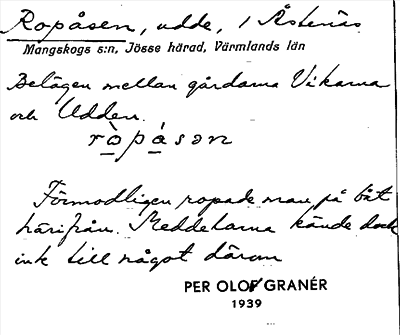 Ropåsen, udde, i Åstenäs
Mangskogs s:n, Jösse härad, Värmlands län
Belägen mellan gårdarna Vikarna
och Udden.
ròpásən
Förmodligen ropade man på båt
härifrån. Meddelarna kände dock
ink till något därom
PER OLOF GRANÉR
1939